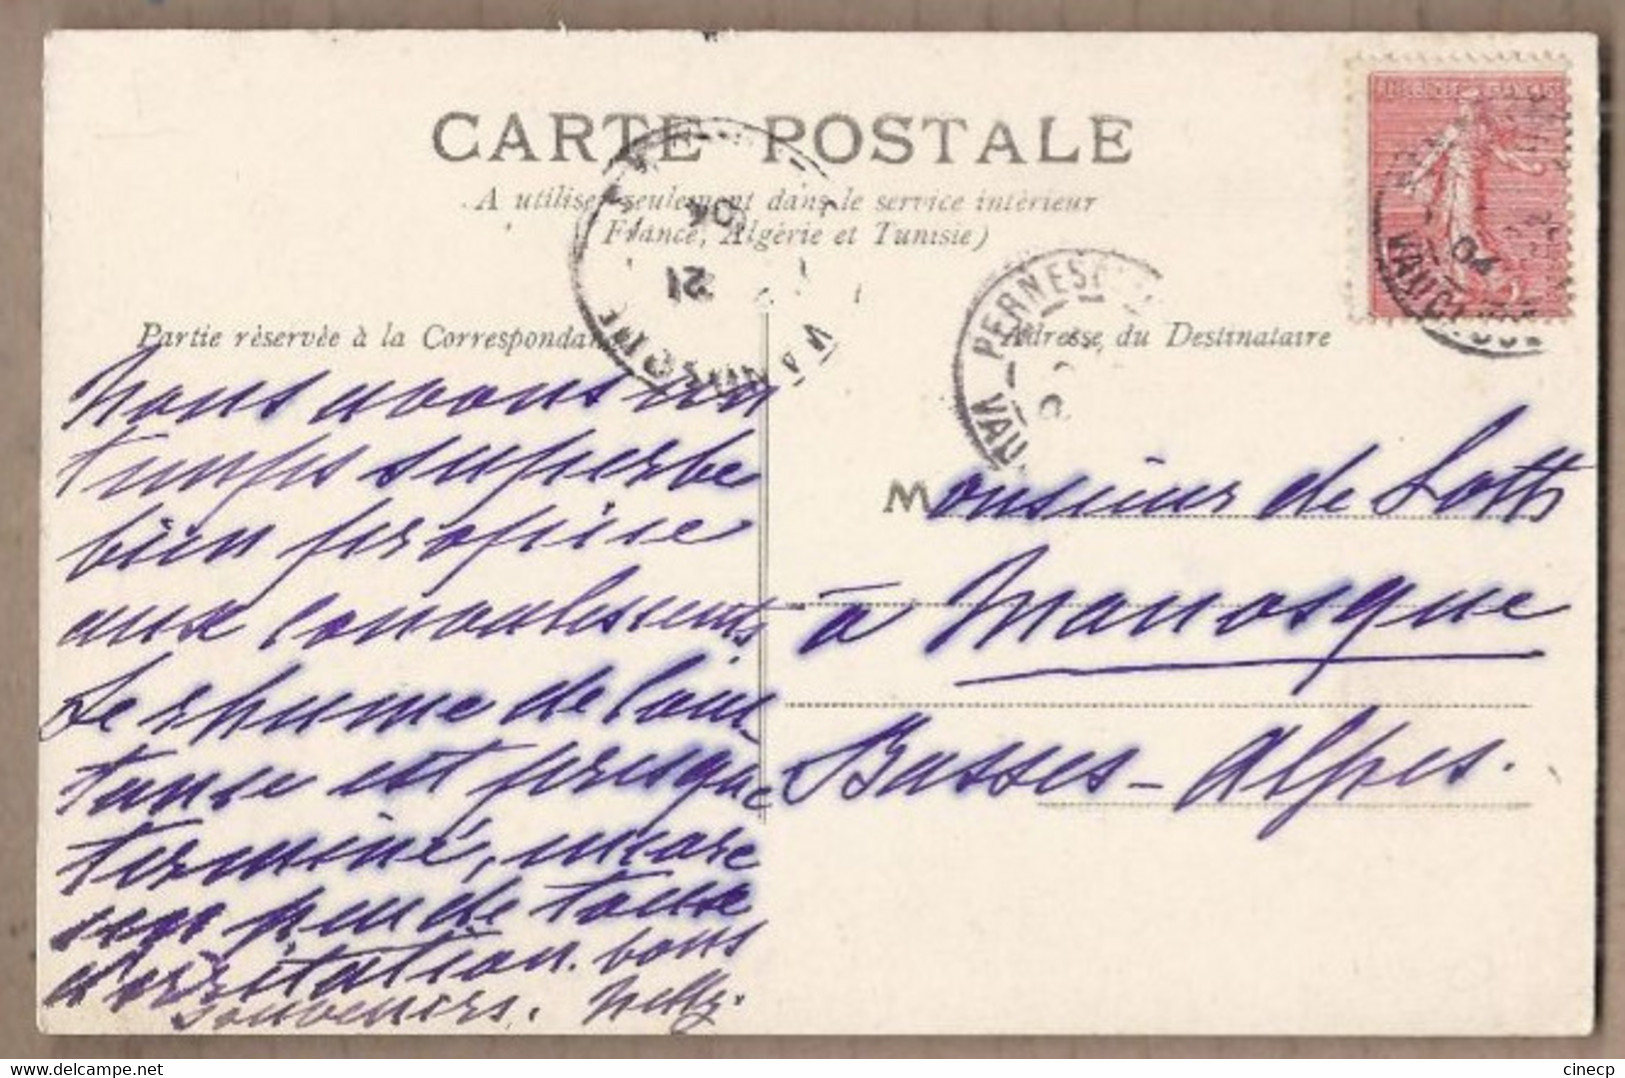 CARTE POSTALE
A utiliser seulement dans le service intérieur
France, Algérie et Tunisie)
Partie réservée à la Correspondan
Adresse du Destinataire
Nous avons un
temps superbe
bien propice
aux convalescents
Le rhume de Cons-
tance est presque
terminé, encore
un peu de toux
d'irritation. bons
souvenirs. Nelly.
Monsieur de Lotts
à Manosque
Basses-Alpes.
PERNES
VAU
04
21
04
VAUCLUSE
REPUBLIQUE FRANÇAISE
cinecp